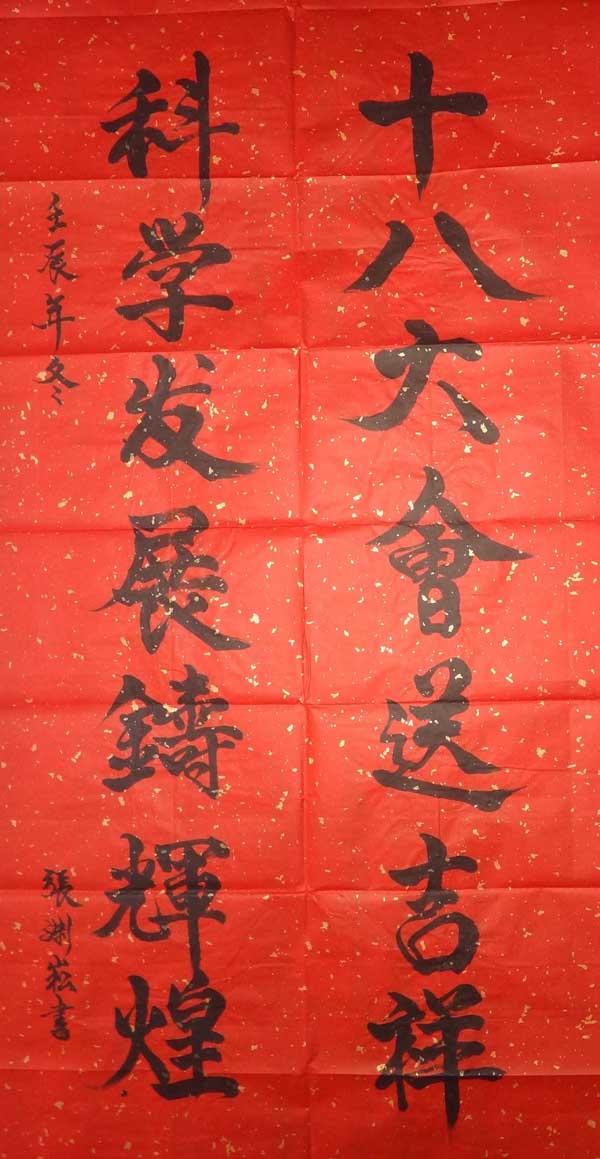 十八大會送吉祥
科学发展鑄輝煌
壬辰年冬
張渊崧書